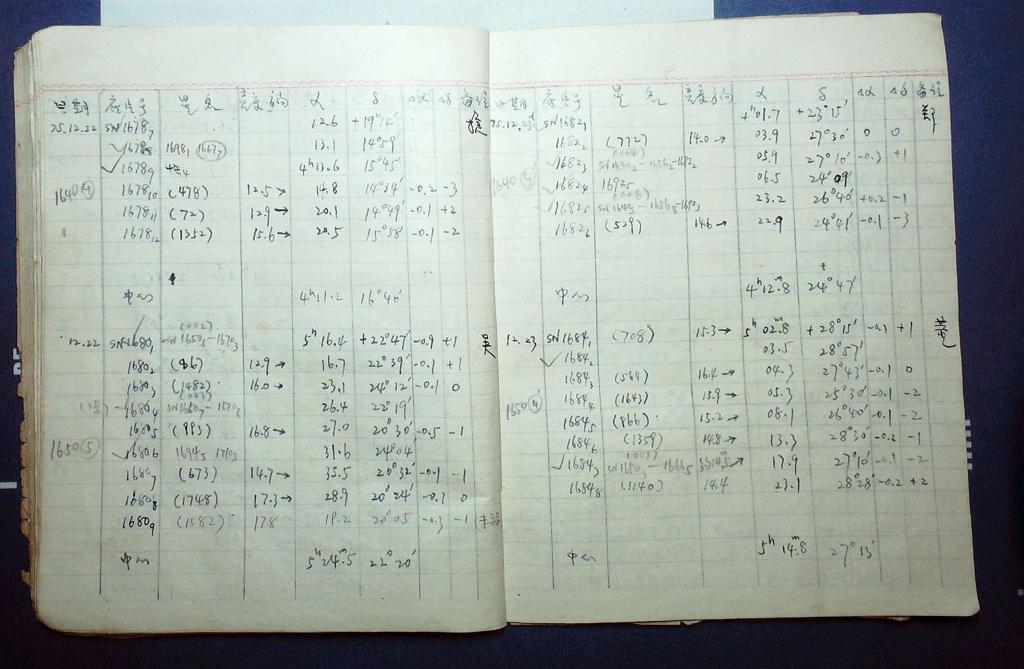 日期 底片号 星名 亮度方向 α δ Δα Δδ 备注
75.12.22 SN1678₇ 12.6 +19°14′
✓1678₈ 1698₁ (1667₇) 13.1 14°59′
✓1678₉ 4ʰ13.6 15°45′
1640④ 1678₁₀ (478) 12.5→ 14.8 14°34′ -0.2 -3
1678₁₁ (72) 12.9→ 20.1 14°49′ -0.1 +2
1678₁₂ (1352) 15.6→ 20.5 15°58′ -0.1 -2
中心 4ʰ11.2 16°46′
(002)
12.22 SN1680₁ SN1650₅-1670₃ 5ʰ16.4 +22°47′ -0.9 +1 吴
1680₂ (86) 12.9→ 16.7 22°39′ -0.1 +1
1680₃ (1482) 16.0→ 23.1 24°12′ -0.1 0
(003)
1680₄ 26.4 22°19′
1680₅ (993) 16.8→ 27.0 20°30′ -0.5 -1
1650⑤ ✓1680₆ 1694₅ 1710₃ 31.6 24°04′
1680₇ (673) 14.7→ 35.5 20°32′ -0.1 -1
1680₈ (1748) 17.3→ 28.9 20°24′ -0.1 0
1680₉ (1582) 17.8 19.2 20°05′ -0.3 -1
中心 5ʰ24ᵐ.5 22°20′
日期 底片号 星名 亮度方向 α δ Δα Δδ 备注
75.12.23 SN1682₁ 4ʰ01.7 +23°15′ 郑
1682₂ (772) 14.0→ 03.9 27°30′ 0 0
(004)
✓1682₃ 05.9 27°10′ -0.3 +1
1640 ✓1682₄ 1692₅ 06.5 24°09′
(006)
✓1682₅ 23.2 26°40′ +0.2 -1
1682₆ (529) 14.6→ 22.9 24°41′ -0.1 -3
中心 4ʰ12ᵐ.8 24°47′
12.23 SN1684₁ (708) 15.3→ 5ʰ02ᵐ.8 +28°15′ -0.1 +1
✓1684₂ 03.5 28°57′
1684₃ (564) 16.4→ 04.3 27°43′ -0.1 0
1650④ 1684₄ (1643) 15.9→ 05.3 25°30′ -0.1 -2
1684₅ (866) 15.2→ 08.1 26°40′ -0.1 -2
1684₆ (1359) 14.8→ 13.3 28°30′ -0.2 -1
(001)
✓1684₇ SN1650₂-1666₅ 14.5→ 17.9 27°10′ -0.1 -2
1684₈ (1140) 14.4 23.1 28°28′ -0.2 +2
中心 5ʰ14ᵐ.8 27°13′